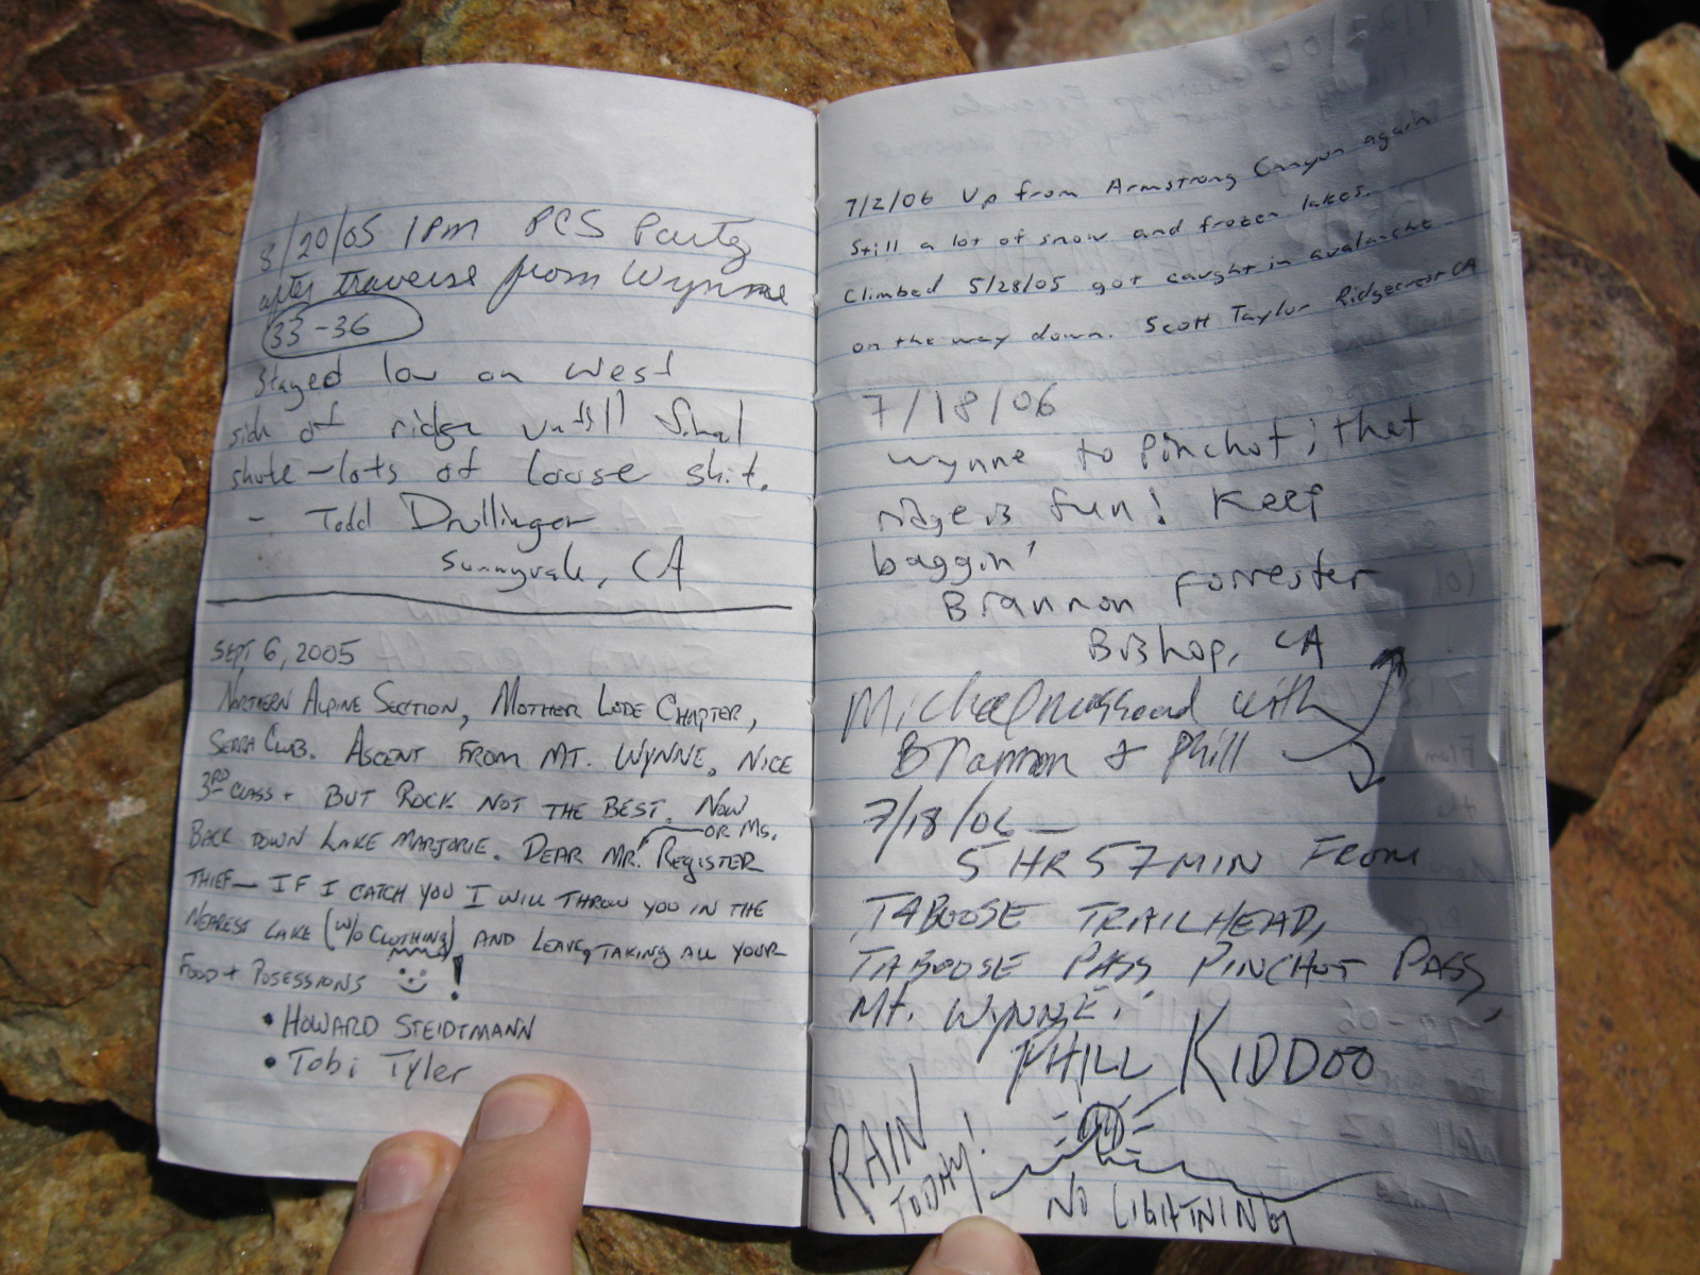 8/20/05 1PM PCS Party
after traverse from Wynne
33-36
Stayed low on West
side of ridge untill final
shute - lots of loose shit.
- Todd Drullinger
Sunnyvale, CA
SEPT 6, 2005
NORTHERN ALPINE SECTION, MOTHER LODE CHAPTER,
SERRA CLUB. ASCENT FROM MT. WYNNE. NICE
3RD CLASS + BUT ROCK NOT THE BEST. NOW
BACK DOWN LAKE MARJORIE. DEAR MR. OR MS. REGISTER
THIEF - IF I CATCH YOU I WILL THROW YOU IN THE
NEAREST LAKE (W/O CLOTHING) AND LEAVE, TAKING ALL YOUR
FOOD + POSESSIONS !
• HOWARD STEIDTMANN
• Tobi Tyler
7/2/06 Up from Armstrong Canyon again
Still a lot of snow and frozen lakes.
Climbed 5/28/05 got caught in avalanche
on the way down. Scott Taylor Ridgecrest CA
7/18/06
Wynne to Pinchot; that
ridge is fun! Keep
baggin'
Brannon Forrester
Bishop, CA
Michael with
Brannon & Phill
7/18/06 -
5 HR 57 MIN FROM
TABOOSE TRAILHEAD,
TABOOSE PASS, PINCHOT PASS,
Mt. WYNNE.
PHILL KIDDOO
RAIN
TODAY!
NO LIGHTNING